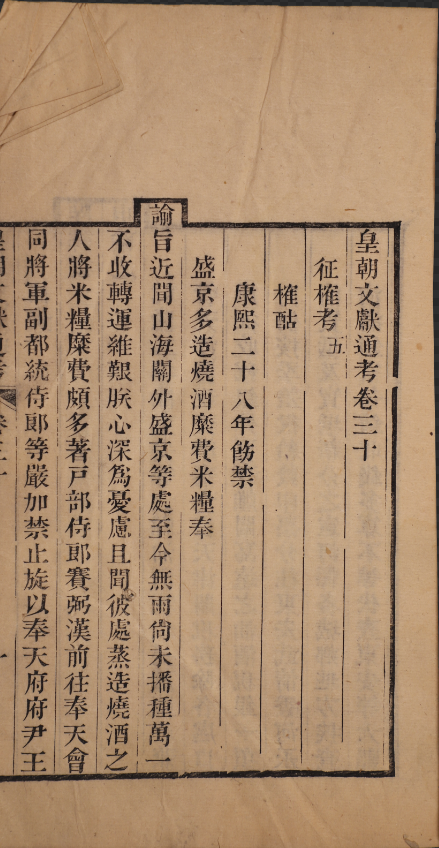 皇朝文獻通考卷三十
征榷考五
榷酤
康熙二十八年飭禁
盛京多造燒酒糜費米糧奉
諭旨近聞山海關外盛京等處至今無雨尙未播種萬一
不收轉運維艱朕心深爲憂慮且聞彼處蒸造燒酒之
人將米糧糜費頗多著戸部侍郎賽弼漢前往奉天會
同將軍副都統侍郎等嚴加禁止旋以奉天府府尹王
皇朝文獻通考